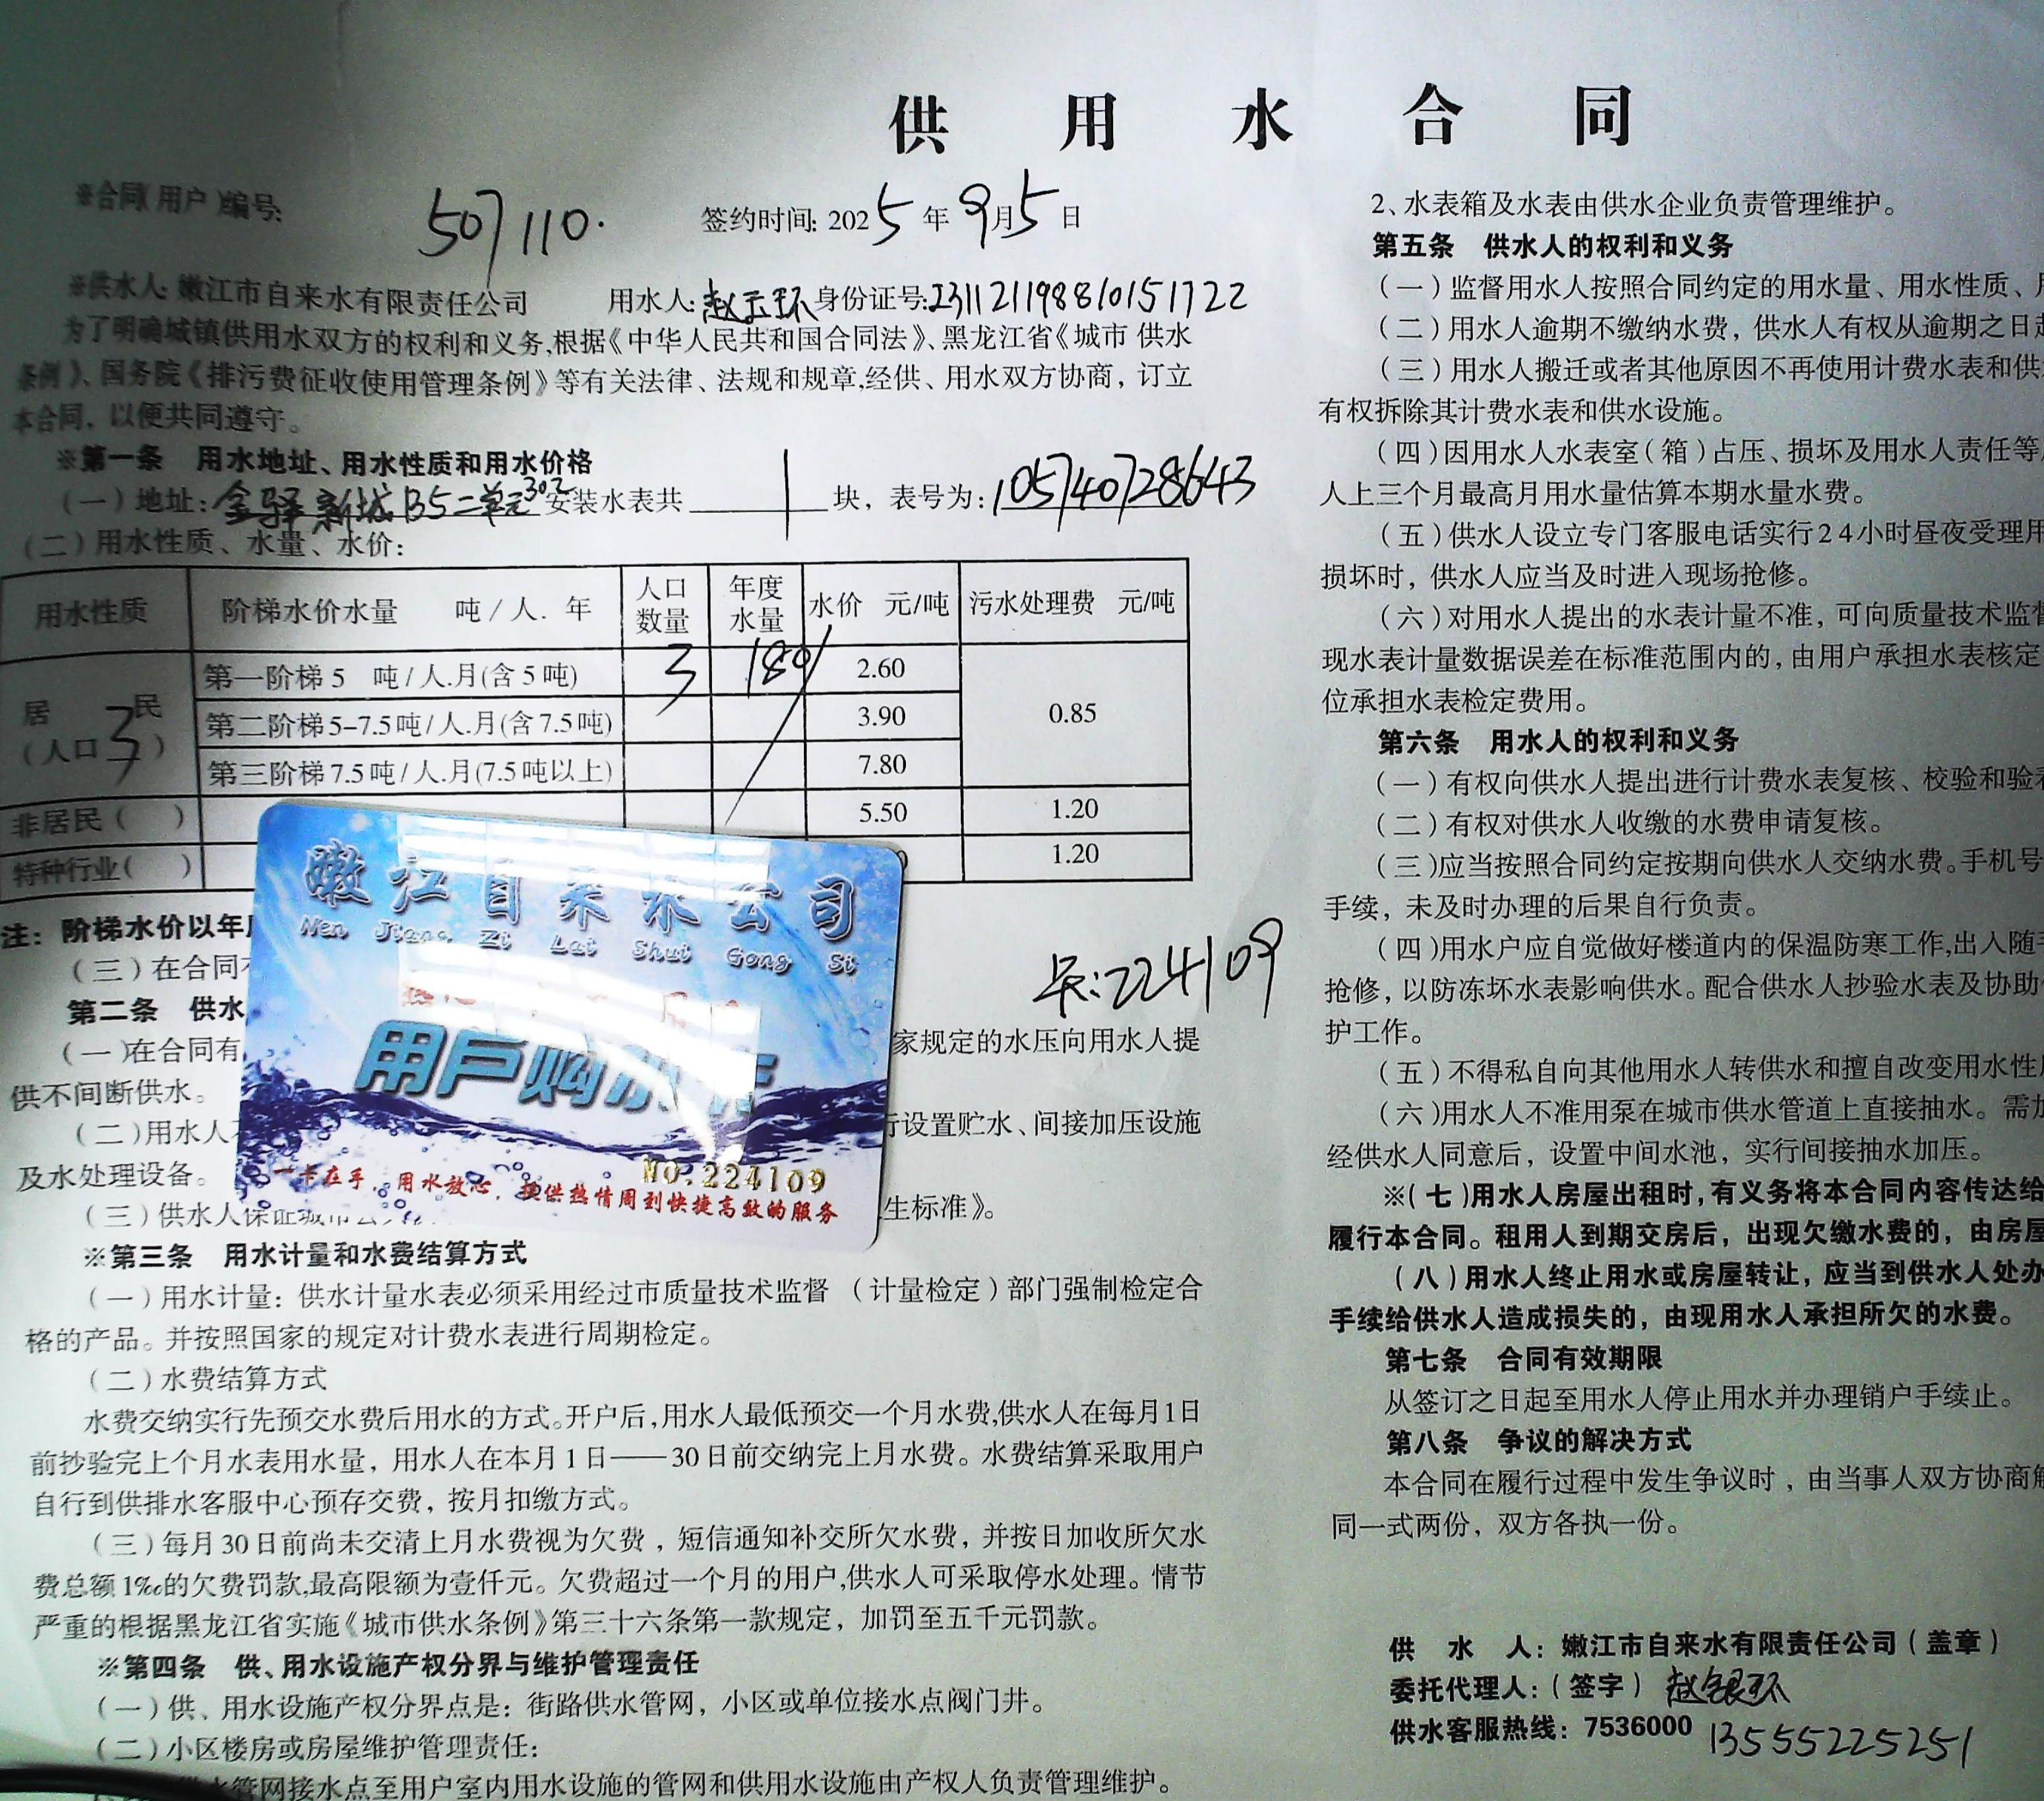 供 用 水 合 同
※合同(用户)编号: 507110.
签约时间: 2025年9月5日
※供水人: 嫩江市自来水有限责任公司 用水人: 赵玉环 身份证号: 231121198810151722
为了明确城镇供用水双方的权利和义务,根据《中华人民共和国合同法》、黑龙江省《城市 供水
条例》、国务院《排污费征收使用管理条例》等有关法律、法规和规章,经供、用水双方协商，订立
本合同，以便共同遵守。
※第一条 用水地址、用水性质和用水价格
(一)地址: 金驿新城B5二单元302 安装水表共 1 块，表号为: 105740728643
(二)用水性质、水量、水价:
用水性质 阶梯水价水量 吨/人. 年 人口数量 年度水量 水价 元/吨 污水处理费 元/吨
居 民 (人口 3 ) 第一阶梯 5 吨/人.月(含 5 吨) 3 180 2.60 0.85
第二阶梯 5-7.5 吨/人.月(含 7.5 吨) 3.90
第三阶梯 7.5 吨/人.月(7.5 吨以上) 7.80
非居民( ) 5.50 1.20
特种行业( ) 0 1.20
注: 阶梯水价以年
(三)在合同
卡:224109
第二条 供水
(一)在合同有
家规定的水压向用水人提
供不间断供水。
(二)用水人
行设置贮水、间接加压设施
及水处理设备。
(三)供水人保证城市
生标准》。
嫩江自来水公司
Nen Jiang Zi Lai Shui Gong Si
用户购水
NO.224109
一卡在手，用水放心，提供热情周到快捷高效的服务
※第三条 用水计量和水费结算方式
(一)用水计量: 供水计量水表必须采用经过市质量技术监督 (计量检定)部门强制检定合
格的产品。并按照国家的规定对计费水表进行周期检定。
(二)水费结算方式
水费交纳实行先预交水费后用水的方式。开户后,用水人最低预交一个月水费,供水人在每月1日
前抄验完上个月水表用水量，用水人在本月 1 日——30 日前交纳完上月水费。水费结算采取用户
自行到供排水客服中心预存交费，按月扣缴方式。
(三)每月 30 日前尚未交清上月水费视为欠费，短信通知补交所欠水费，并按日加收所欠水
费总额 1‰的欠费罚款,最高限额为壹仟元。欠费超过一个月的用户,供水人可采取停水处理。情节
严重的根据黑龙江省实施《城市供水条例》第三十六条第一款规定，加罚至五千元罚款。
※第四条 供、用水设施产权分界与维护管理责任
(一)供、用水设施产权分界点是: 街路供水管网，小区或单位接水点阀门井。
(二)小区楼房或房屋维护管理责任:
供水管网接水点至用户室内用水设施的管网和供用水设施由产权人负责管理维护。
2、水表箱及水表由供水企业负责管理维护。
第五条 供水人的权利和义务
(一)监督用水人按照合同约定的用水量、用水性质、
(二)用水人逾期不缴纳水费，供水人有权从逾期之日
(三)用水人搬迁或者其他原因不再使用计费水表和供
有权拆除其计费水表和供水设施。
(四)因用水人水表室(箱)占压、损坏及用水人责任等
人上三个月最高月用水量估算本期水量水费。
(五)供水人设立专门客服电话实行24小时昼夜受理用
损坏时，供水人应当及时进入现场抢修。
(六)对用水人提出的水表计量不准，可向质量技术监督
现水表计量数据误差在标准范围内的,由用户承担水表核定
位承担水表检定费用。
第六条 用水人的权利和义务
(一)有权向供水人提出进行计费水表复核、校验和验
(二)有权对供水人收缴的水费申请复核。
(三)应当按照合同约定按期向供水人交纳水费。手机号
手续，未及时办理的后果自行负责。
(四)用水户应自觉做好楼道内的保温防寒工作,出入随
抢修,以防冻坏水表影响供水。配合供水人抄验水表及协助
护工作。
(五)不得私自向其他用水人转供水和擅自改变用水性
(六)用水人不准用泵在城市供水管道上直接抽水。需
经供水人同意后，设置中间水池，实行间接抽水加压。
※(七)用水人房屋出租时,有义务将本合同内容传达给
履行本合同。租用人到期交房后，出现欠缴水费的，由房屋
(八)用水人终止用水或房屋转让，应当到供水人处办
手续给供水人造成损失的，由现用水人承担所欠的水费。
第七条 合同有效期限
从签订之日起至用水人停止用水并办理销户手续止。
第八条 争议的解决方式
本合同在履行过程中发生争议时，由当事人双方协商
同一式两份，双方各执一份。
供 水 人: 嫩江市自来水有限责任公司(盖章)
委托代理人:(签字) 赵银环
供水客服热线: 7536000 13555225251